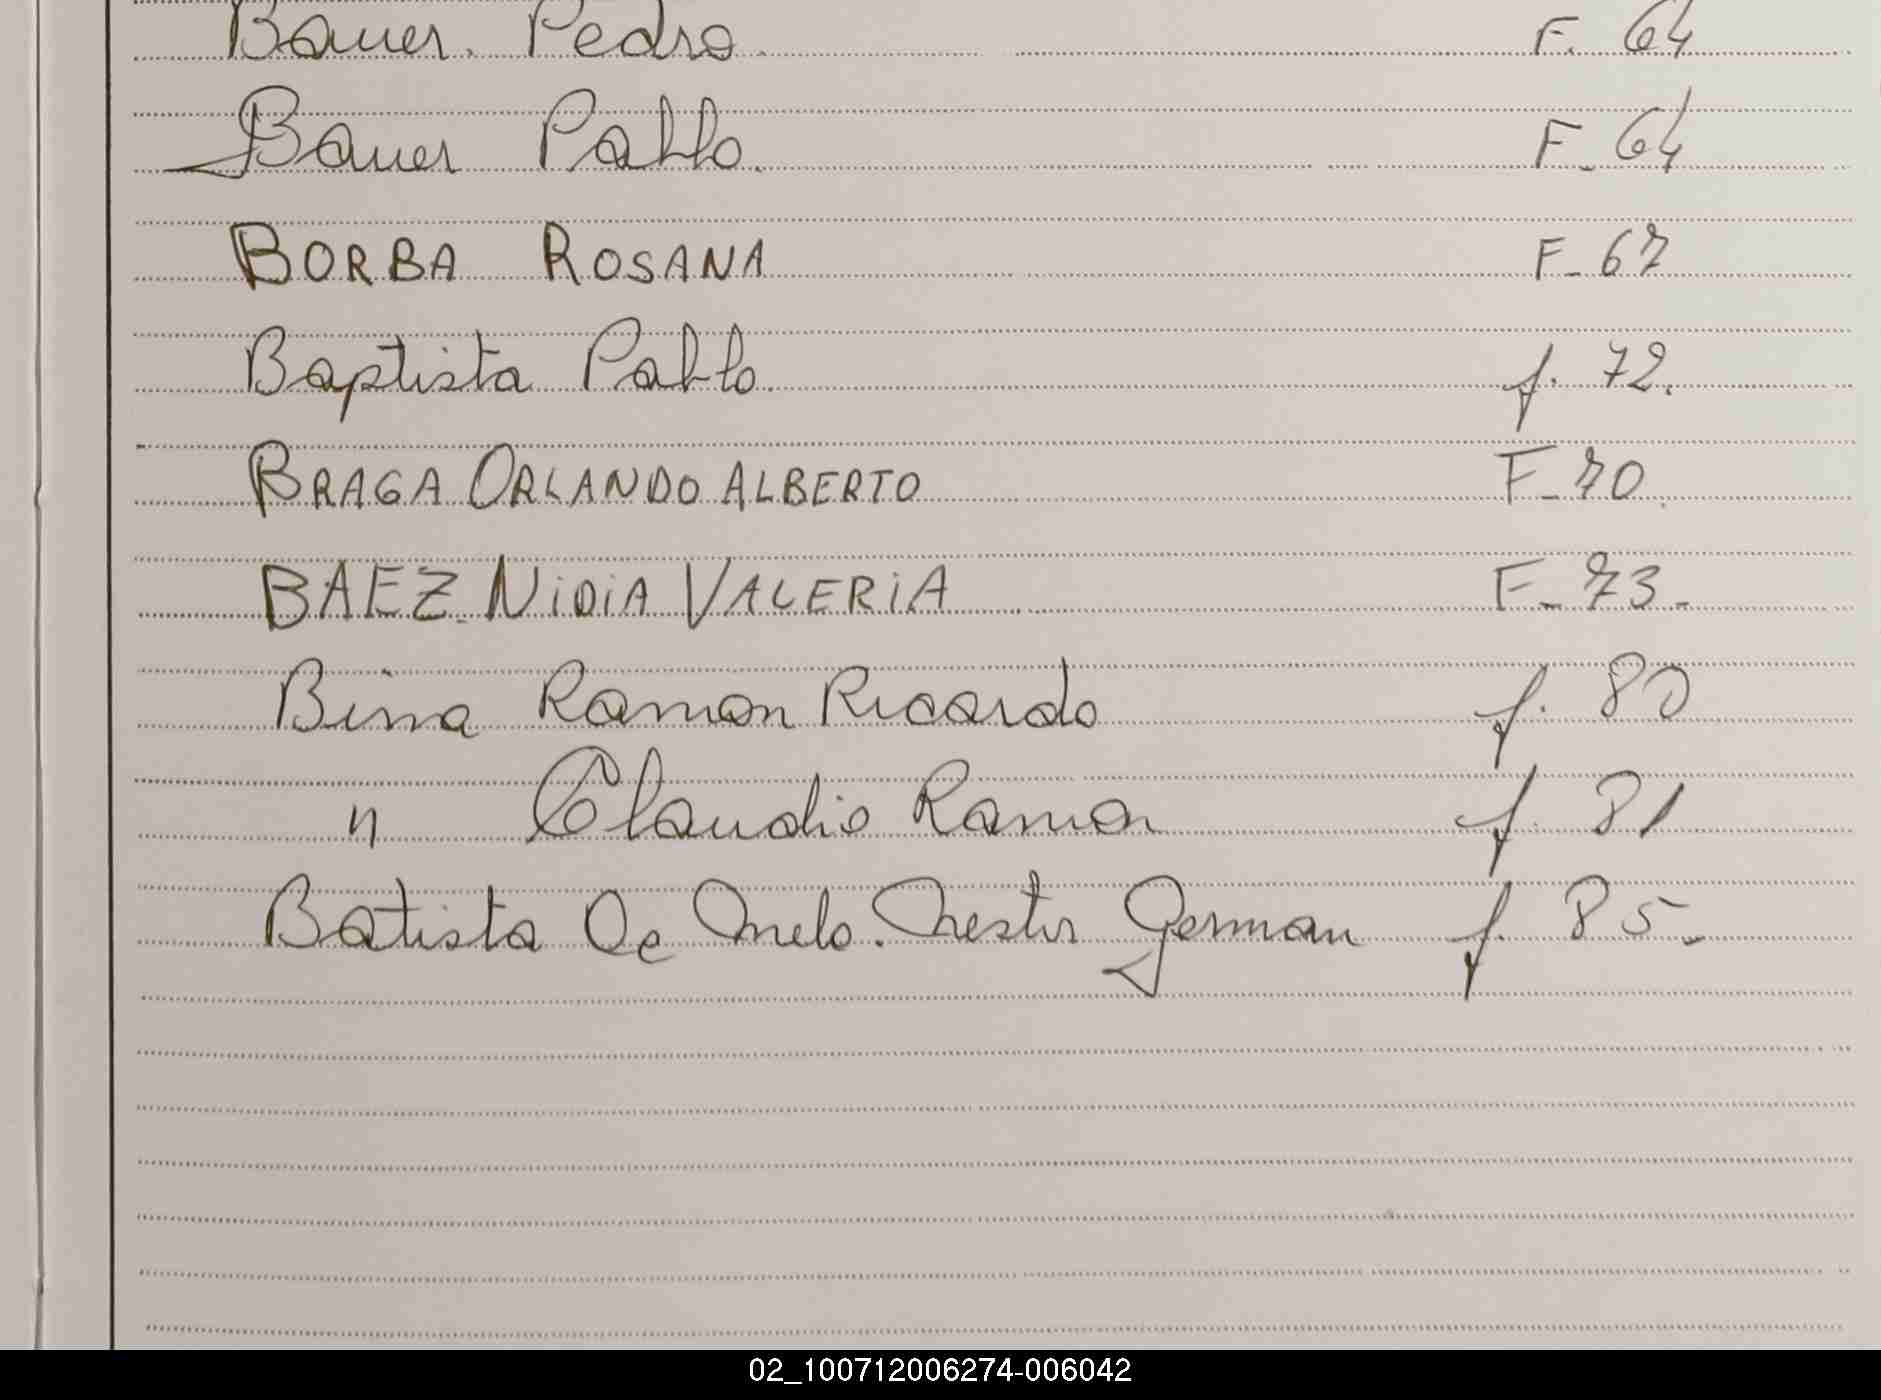 Bauer. Pedro. F. 64
Bauer Pablo. F_ 64
BORBA ROSANA F_ 67
Baptista Pablo. f. 72.
BRAGA ORLANDO ALBERTO F_ 70.
BAEZ. NiDiA VALERiA F_ 73_
Ramon Ricardo f. 80
" Claudio Ramon f. 81
Batista De Melo. Nestor German f. 85_
02_100712006274-006042